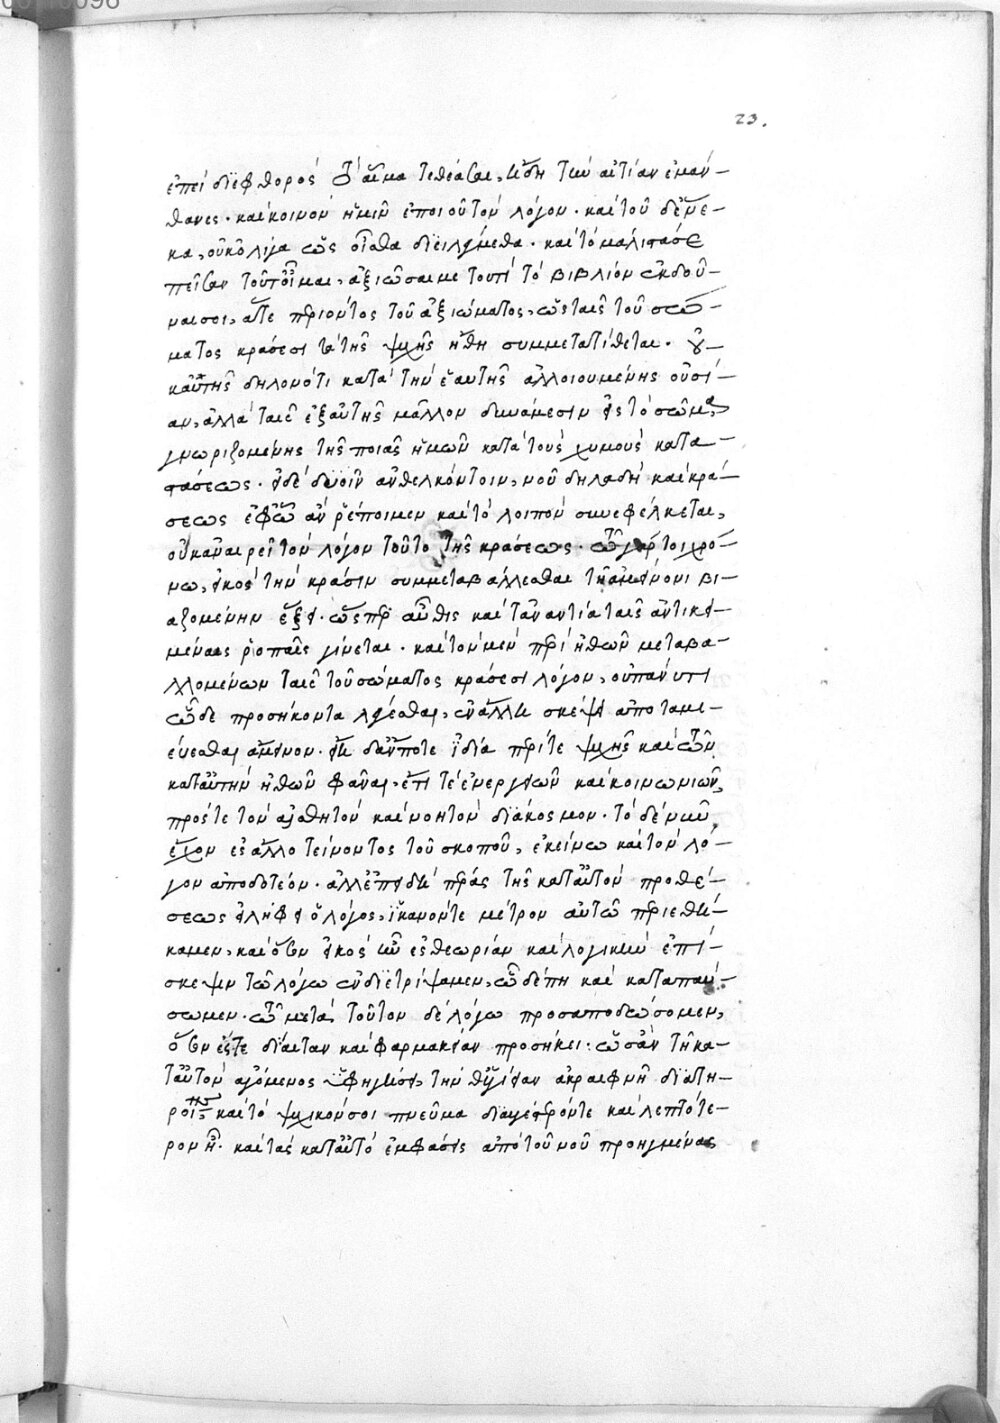 23.
ἐπεὶ διεφθορὸς τὸ αἷμα τεθέασαι, ἤδη τὴν αἰτίαν ἐμάν-
θανες. καὶ κοινὸν ἡμῖν ἐποιοῦ τὸν λόγον. καὶ τοῦ δὲ ἕνε-
κα, οὐκ ὀλίγα ὡς οἶσθα διειλήμμεθα. καὶ τὸ μάλιστά σε
πεῖσαν τοῦτ οἶμαι, ἀξιῶσαί με τουτὶ τὸ βιβλίον ἐκδοῦ-
ναι σοι, ἅτε περιόντος τοῦ ἀξιώματος, ὡς ταῖς τοῦ σώ-
ματος κράσεσι τὰ τῆς ψυχῆς ἤθη συμμετατίθεται. οὐ
καὐτῆς δηλονότι κατὰ τὴν ἑαυτῆς ἀλλοιουμένης οὐσί-
αν, ἀλλὰ ταῖς ἐξ αὐτῆς μᾶλλον δυνάμεσιν εἰς τὸ σῶμα
γνωριζομένης τῆς ποιᾶς ἡμῶν κατὰ τοὺς χυμοὺς κατα-
στάσεως. εἰ δὲ δυοῖν ἀνθελκόντοιν, νοῦ δηλαδὴ καὶ κρά-
σεως ἐφ ᾧ ἂν ῥέποιμεν καὶ τὸ λοιπὸν συνεφέλκεται,
οὐκ ἀναιρεῖ τὸν λόγον τοῦτο τῆς κράσεως. τῷ γάρ τοι χρό-
νῳ, εἰκὸς τὴν κρᾶσιν συμμεταβάλλεσθαι τῇ ἀμείνονι βι-
αζομένην ἕξει. ὥσπερ αὖθις καὶ τἀναντία ταῖς ἀντικει-
μέναις ῥοπαῖς γίνεται. καὶ τὸν μὲν περὶ ἠθῶν μεταβα-
λλομένων ταῖς τοῦ σώματος κράσεσι λόγον, οὐ πάνυ τι
ὧδε προσήκοντα λέγεσθαι, ἐν ἄλλῃ σκέψει ἀποταμι-
εύεσθαι ἄμεινον. ἢ δἄν ποτε ἰδίᾳ περί τε ψυχῆς καὶ τῶν
κατ αὐτὴν ἠθῶν φᾶναι, ἔτι τε ἐνεργειῶν καὶ κοινωνιῶν,
πρός τε τὸν αἰσθητὸν καὶ νοητὸν διάκοσμον. τὸ δὲ νῦν
ἔχον εἰς ἄλλο τείνοντος τοῦ σκοποῦ, ἐκείνῳ καὶ τὸν λό-
γον ἀποδοτέον. ἀλλ ἐπειδὴ πέρας τῆς κατ αὐτὸν προθέ-
σεως εἴληφεν ὁ λόγος, ἱκανόν τε μέτρον αὐτῷ περιεθή-
καμεν, καὶ ὅσον εἰκὸς ἦν εἰς θεωρίαν καὶ λογικὴν ἐπί-
σκεψιν τῷ λόγῳ ἐνδιετρίψαμεν, ὧδέ πη καὶ καταπαύ-
σωμεν. τῷ μετὰ τοῦτον δὲ λόγῳ προσαποδώσομεν,
ὅσον ἔς τε δίαιταν καὶ φαρμακείαν προσήκει. ὡς ἂν τῇ κα-
τ αὐτὸν ἀγόμενος ὑφηγήσει, τήν θ ὑγίειαν ἀκραιφνῆ διατη-
ροίης καὶ τὸ ψυχικόν σοι πνεῦμα διαυγέστερόν τε καὶ λεπτότε-
ρον ᾖ. καὶ τὰς κατ αὐτὸ ἐμφάσεις ἀπὸ τοῦ νοῦ προηγμένας